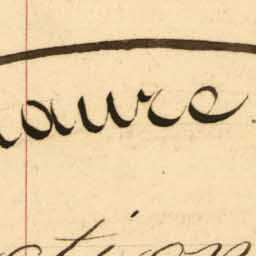 aure.
ction